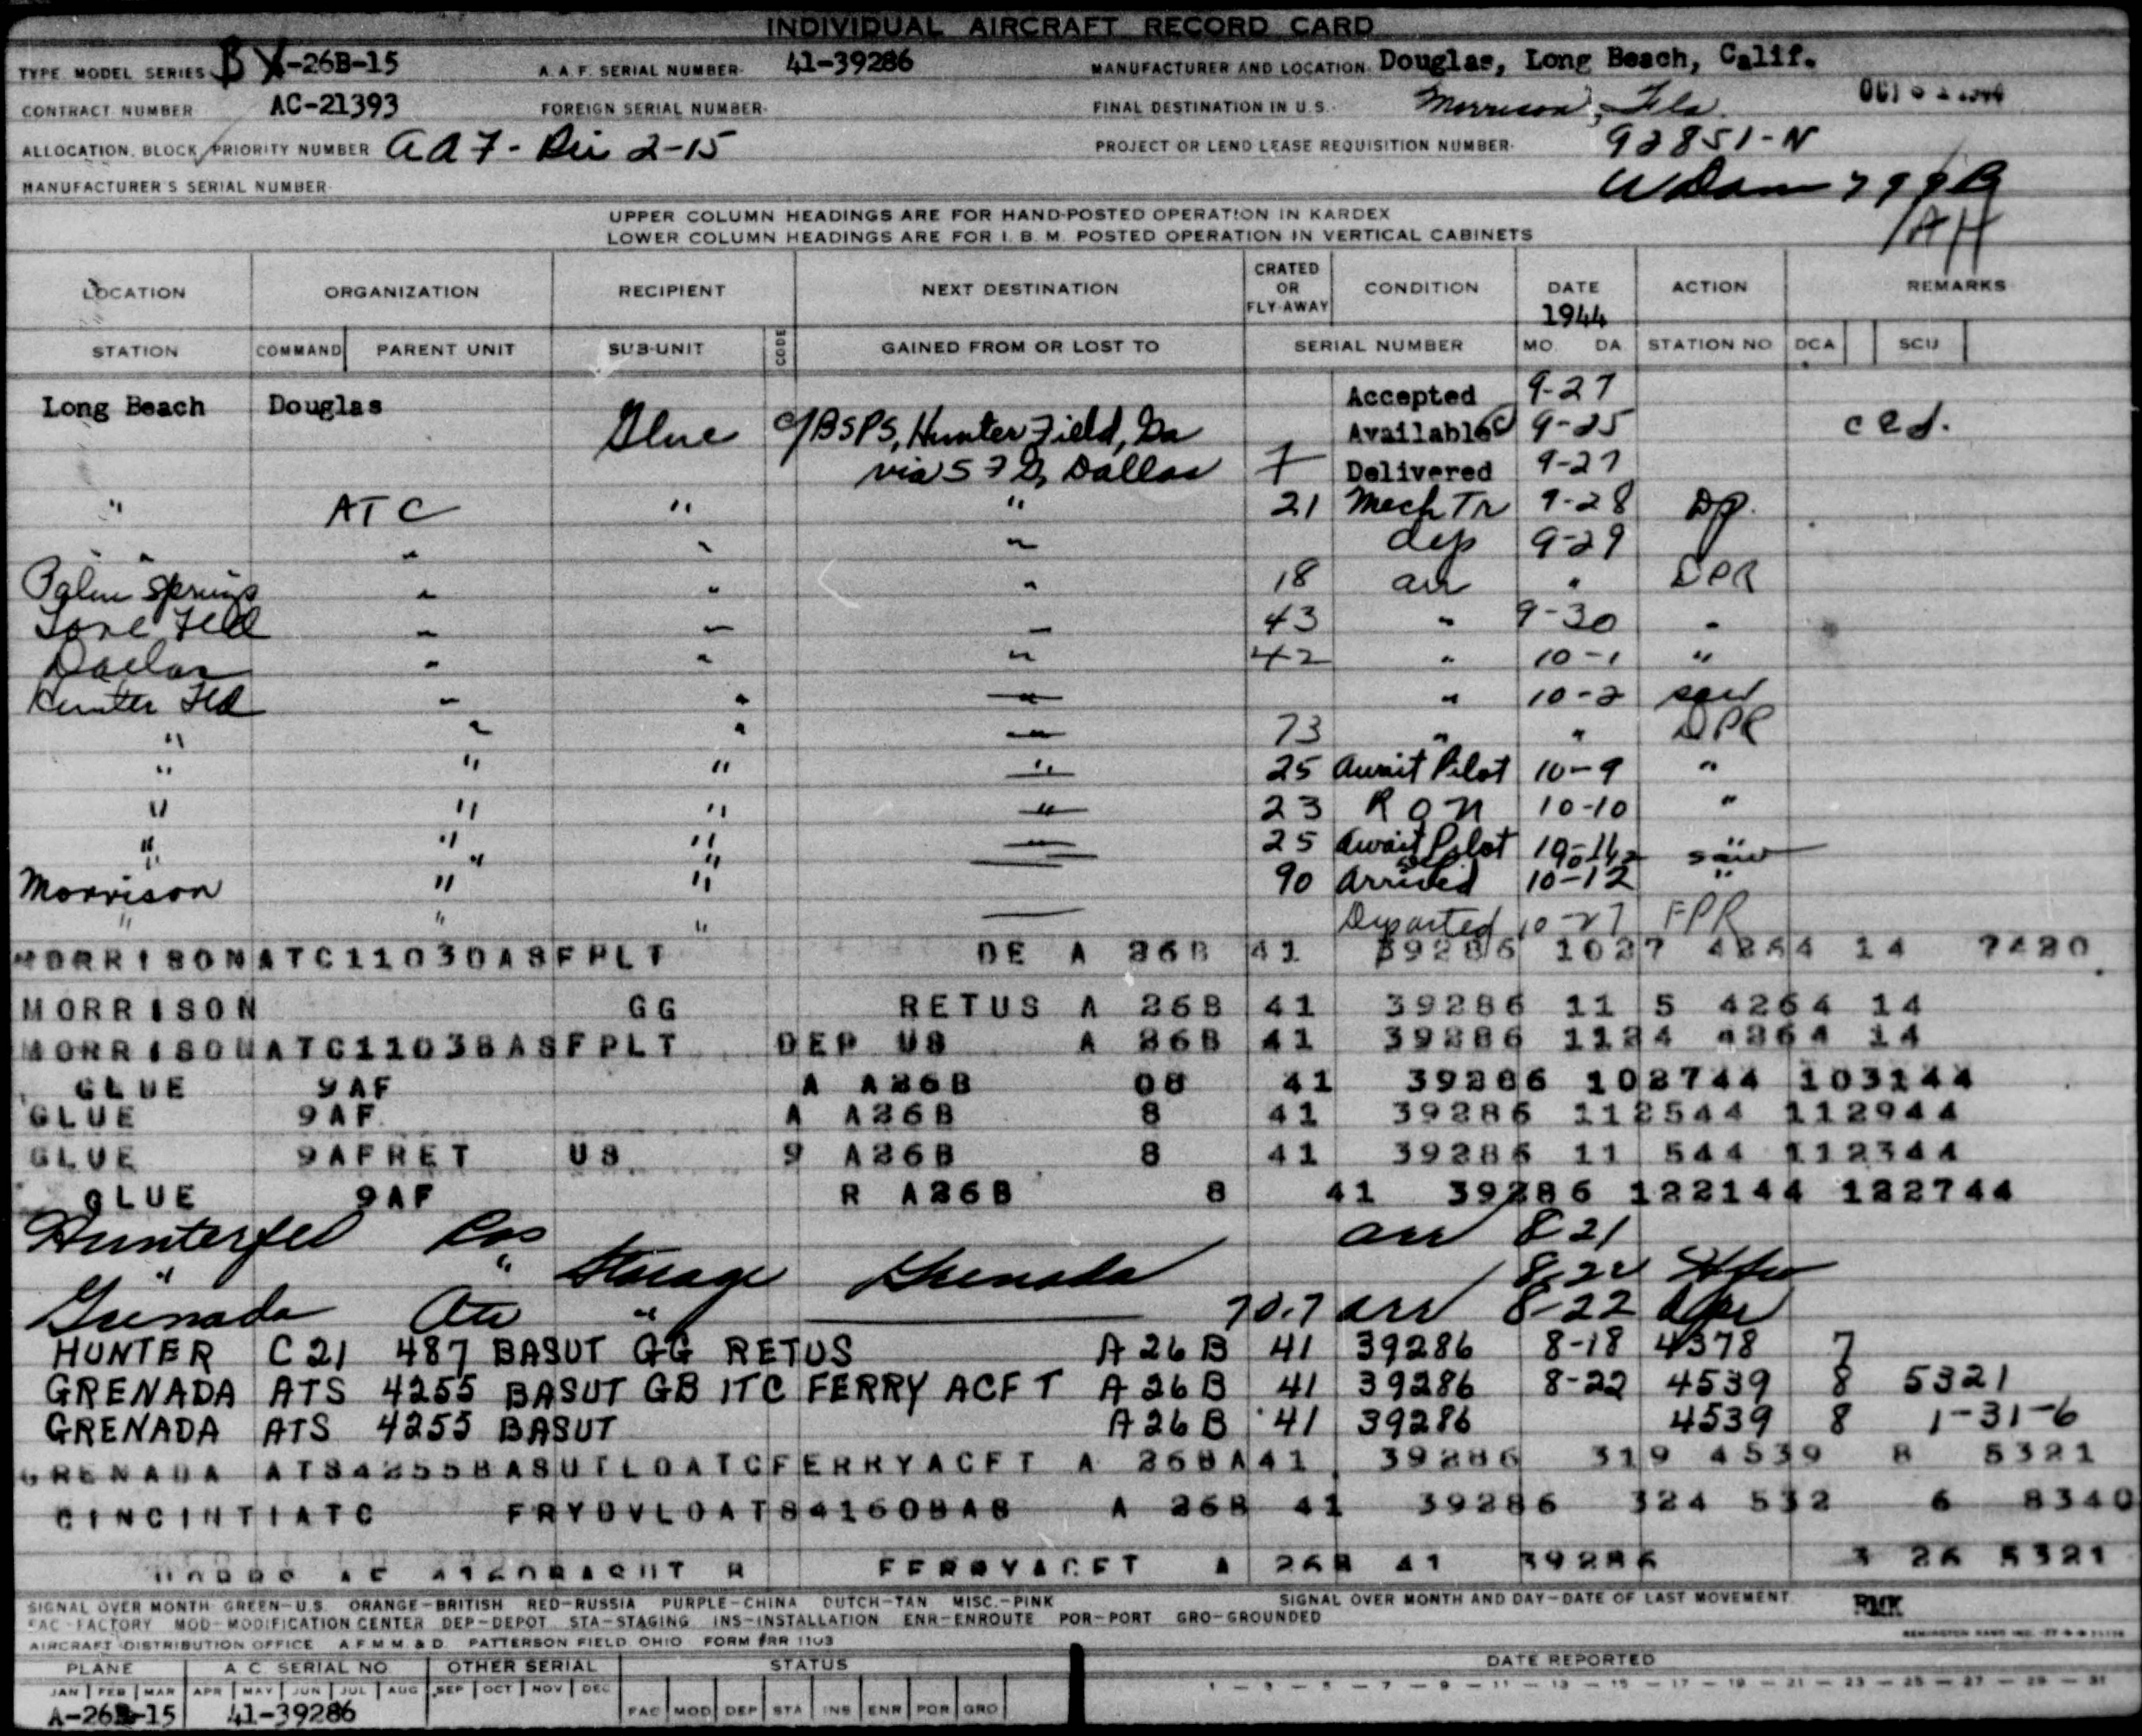 INDIVIDUAL AIRCRAFT RECORD CARD
TYPE MODEL SERIES B -26B-15 A.A.F. SERIAL NUMBER 41-39286 MANUFACTURER AND LOCATION Douglas, Long Beach, Calif.
CONTRACT NUMBER AC-21393 FOREIGN SERIAL NUMBER FINAL DESTINATION IN U.S. Morrison, Fla.
ALLOCATION, BLOCK, PRIORITY NUMBER AAF - Div 2-15 PROJECT OR LEND LEASE REQUISITION NUMBER 92851-N
MANUFACTURER'S SERIAL NUMBER
/AH
UPPER COLUMN HEADINGS ARE FOR HAND-POSTED OPERATION IN KARDEX
LOWER COLUMN HEADINGS ARE FOR I. B. M. POSTED OPERATION IN VERTICAL CABINETS
LOCATION ORGANIZATION RECIPIENT NEXT DESTINATION CRATED OR FLY-AWAY CONDITION DATE 1944 ACTION REMARKS
STATION COMMAND PARENT UNIT SUB-UNIT CODE GAINED FROM OR LOST TO SERIAL NUMBER MO. DA. STATION NO DCA SCU
Long Beach Douglas Accepted 9-27
Glue c/BSPS, Hunter Field, Ga Available 9-25 ced.
via Dallas 7 Delivered 9-27
" ATC " " 21 Mech Tr 9-28 Dp.
" " " " dep 9-29
Palm Springs " " " 18 arr " DPR
Love Field " " " 43 " 9-30 "
Dallas " " " 42 " 10-1 "
Hunter Fld " " " " 10-2 saw
" " " " 73 " " DPR
" " " " 25 Await Pilot 10-9 "
" " " " 23 RON 10-10 "
" " " " 25 Await Pilot
" " " saw
Morrison " " 90 Arrived 10-12 "
" " " Departed 10-27 FPR
MORRISONATC11030ASFPLT DE A 26B 41 39286 1027 4264 14 7420
MORRISON GG RETUS A 26B 41 39286 11 5 4264 14
MORRISONATC11038ASFPLT DEP US A 26B 41 39286 1124 4264 14
GLUE 9AF A A26B 08 41 39286 102744 103144
GLUE 9AF A A26B 8 41 39286 112544 112944
GLUE 9AFRET US 9 A26B 8 41 39286 11 544 112344
GLUE 9AF R A26B 8 41 39286 122144 122744
Hunterfld arr 8 21
" " Storage Grenada 8-22
Grenada " 70.7 arr 8-22
HUNTER C21 487 BASUT GG RETUS A26B 41 39286 8-18 4378 7
GRENADA ATS 4255 BASUT GB ITC FERRY ACFT A26B 41 39286 8-22 4539 8 5321
GRENADA ATS 4255 BASUT A26B 41 39286 4539 8 1-31-6
GRENADA ATS4255BASUTLOATCFERRYACFT A 26BA41 39286 319 4539 8 5321
CINCINTIATC FRYDVLOATS4160BAS A 26B 41 39286 324 532 6 8340
FERRYACFT A 26B 41 39286 3 26 5321
SIGNAL OVER MONTH GREEN-U.S. ORANGE-BRITISH RED-RUSSIA PURPLE-CHINA DUTCH-TAN MISC.-PINK SIGNAL OVER MONTH AND DAY-DATE OF LAST MOVEMENT RMK
FAC-FACTORY MOD-MODIFICATION CENTER DEP-DEPOT STA-STAGING INS-INSTALLATION ENR-ENROUTE POR-PORT GRO-GROUNDED
AIRCRAFT DISTRIBUTION OFFICE A.F.M.M. & D. PATTERSON FIELD OHIO FORM #RR 1103
PLANE A C. SERIAL NO OTHER SERIAL STATUS DATE REPORTED
JAN FEB MAR APR MAY JUN JUL AUG SEP OCT NOV DEC FAC MOD DEP STA INS ENR POR GRO 1 - 3 - 5 - 7 - 9 - 11 - 13 - 15 - 17 - 19 - 21 - 23 - 25 - 27 - 29 - 31
A-26B-15 41-39286